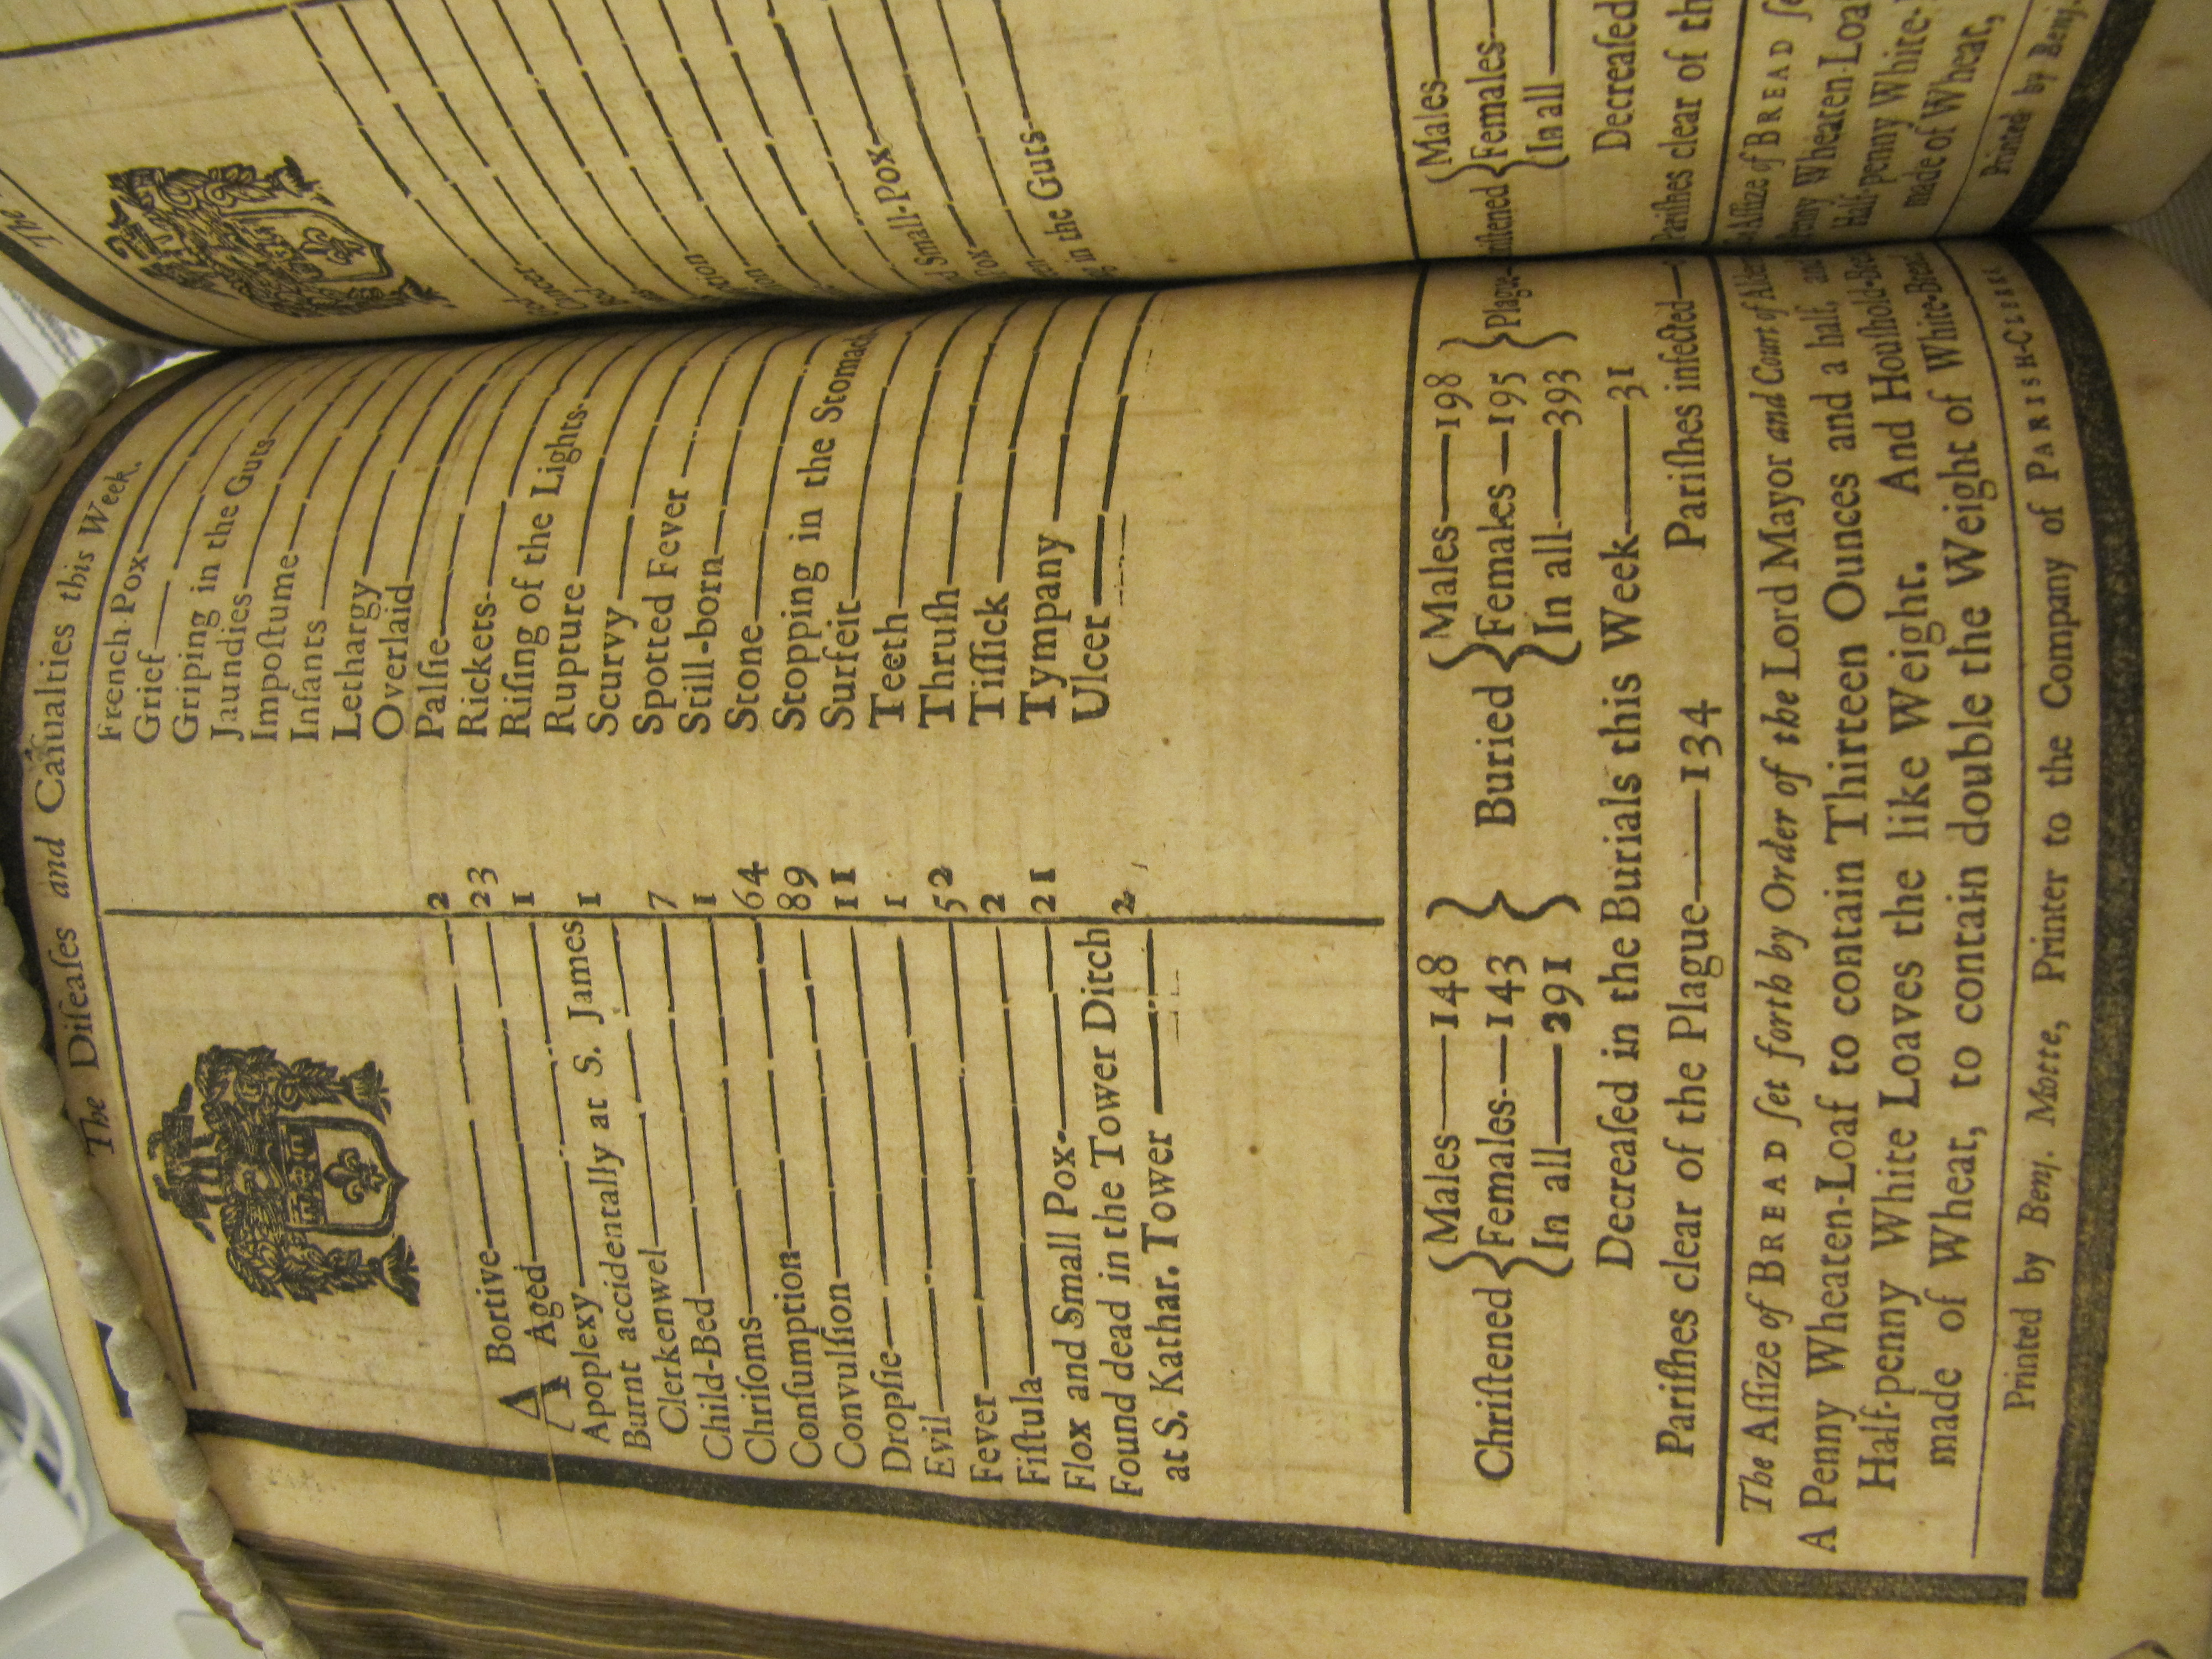 The Diſeaſes and Caſualties this Week.
A Bortive 2
Aged 23
Apoplexy 1
Burnt accidentally at S. James
Clerkenwel 1
Child-Bed 7
Chriſoms 1
Conſumption 64
Convulſion 89
Dropſie 11
Evil 1
Fever 52
Fiſtula 2
Flox and Small Pox 21
Found dead in the Tower Ditch
at S. Kathar. Tower 2
French-Pox
Grief
Griping in the Guts
Jaundies
Impoſtume
Infants
Lethargy
Overlaid
Palſie
Rickets
Riſing of the Lights
Rupture
Scurvy
Spotted Fever
Still-born
Stone
Stopping in the Stomach
Surfeit
Teeth
Thruſh
Tiſſick
Tympany
Ulcer
Chriſtened { Males—148 Females—143 In all—291 }
Buried { Males—198 Females—195 In all—393 } Plague
Decreaſed in the Burials this Week—31
Pariſhes clear of the Plague—134 Pariſhes infected—
The Aſſize of BREAD ſet forth by Order of the Lord Mayor and Court of
A Penny Wheaten-Loaf to contain Thirteen Ounces and a half, and
Half-penny White Loaves the like Weight. And Houſhold-
made of Whear, to contain double the Weight of White-Bread
Printed by Benj. Motte, Printer to the Company of PARISH-CLERKS
The
Small-Pox
in the Guts
Males
Females
In all
Decreaſed
Pariſhes clear of
Aſſize of BREAD
Wheaten-Loaf
Half-penny White-
made of Whear,
Printed by Benj.